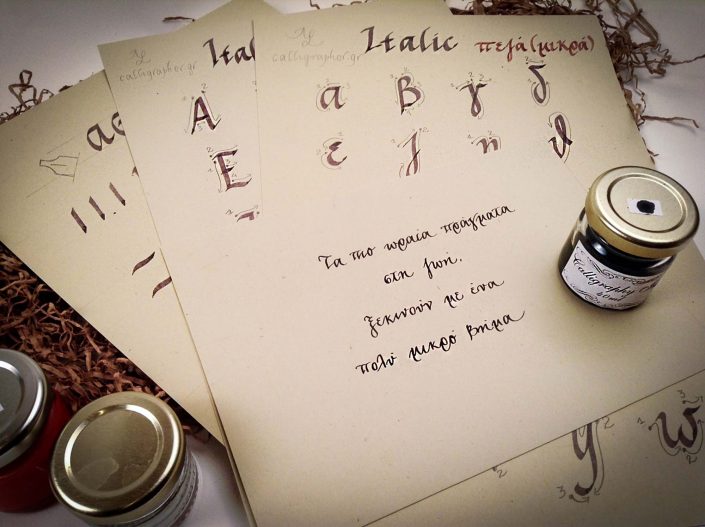 Ital
calligrapher.gr
Α
Ε
Italic πεζά (μικρά)
calligrapher.gr
α β γ δ
ε ζ η θ
Τα πιο ωραία πράγματα
στη ζωή,
ξεκινούν με ένα
πολύ μικρό βήμα
Calligraphy
ψ ω